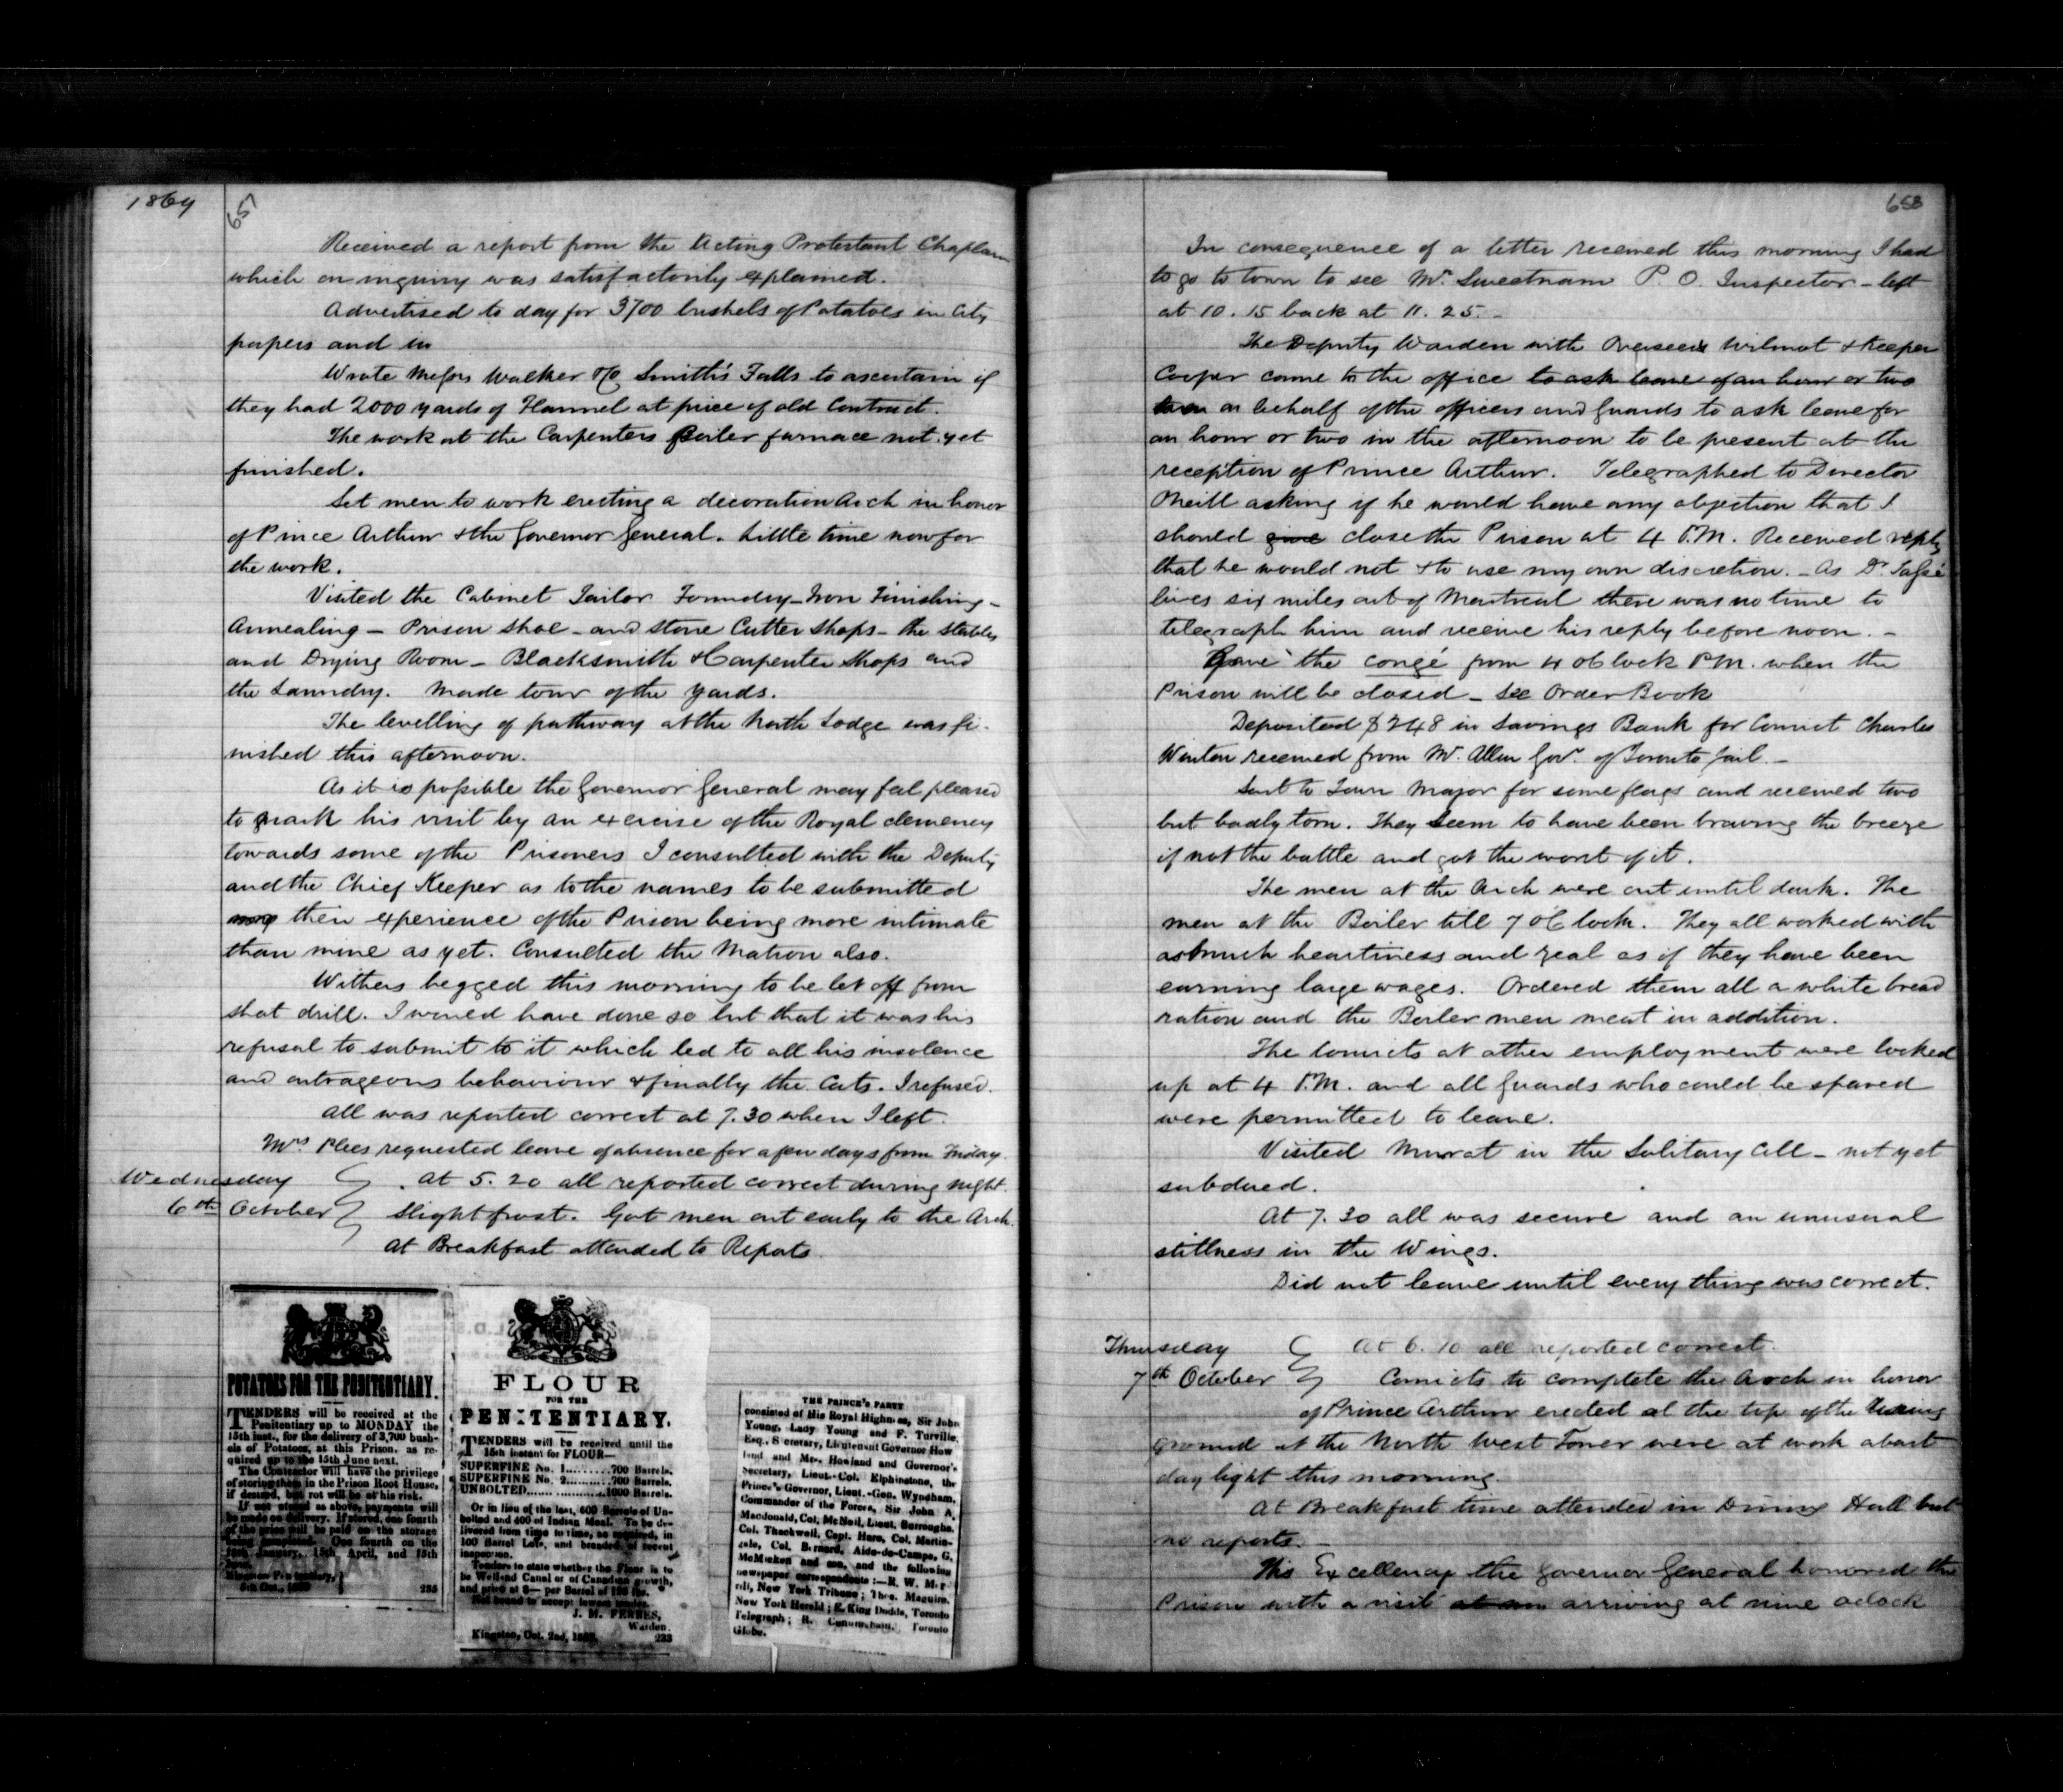 1869
657
Received a report from the Acting Protestant Chaplain
which on inquiry was satisfactorily explained.
Advertised to day for 3700 bushels of Potatoes in City
papers and in
Wrote Messrs Walker & Co Smith's Falls to ascertain if
they had 2000 yards of Flannel at price of old Contract.
The work at the Carpenters Boiler furnace not yet
finished.
Set men to work erecting a decoration Arch in honor
of Prince Arthur & the Governor General. Little time now for
the work.
Visited the Cabinet Tailor Foundry - Iron Finishing -
Annealing - Prison Shoe - and Stone Cutter Shops - the Stables
and Drying Room - Blacksmith & Carpenter Shops and
the Laundry. Made tour of the yards.
The levelling of pathway at the North Lodge was fi-
nished this afternoon.
As it is possible the Governor General may feel pleased
to mark his visit by an exercise of the Royal clemency
towards some of the Prisoners I consulted with the Deputy
and the Chief Keeper as to the names to be submitted
their experience of the Prison being more intimate
than mine as yet. Consulted the Matron also.
Withers begged this morning to be let off from
shot drill. I would have done so but that it was his
refusal to submit to it which led to all his insolence
and outrageous behaviour & finally the Cats. I refused.
All was reported correct at 7.30 when I left.
Mrs Plees requested leave of absence for a few days from Friday.
Wednesday At 5.20 all reported correct during night.
6th October Slight frost. Got men out early to the Arch.
At Breakfast attended to Reports.
POTATOES FOR THE PENITENTIARY.
TENDERS will be received at the
Penitentiary up to MONDAY the
15th inst., for the delivery of 3,700 bush-
els of Potatoes, at this Prison, as re-
quired up to the 15th June next.
The Contractor will have the privilege
of storing them in the Prison Root House,
if desired, but rot will be at his risk.
If not stored as above, payments will
be made on delivery. If stored, one fourth
of the price will be paid on the storage
being completed. One fourth on the
15th January, 15th April, and 15th
June.
Kingston Penitentiary,
5th Oct., 1869
235
FLOUR
FOR THE
PENITENTIARY.
TENDERS will be received until the
15th instant for FLOUR—
SUPERFINE No. 1........700 Barrels.
SUPERFINE No. 2........700 Barrels.
UNBOLTED...............1000 Barrels.
Or in lieu of the last, 600 Barrels of Un-
bolted and 400 of Indian Meal. To be de-
livered from time to time, as required, in
100 Barrel Lots, and branded, of recent
inspection.
Tenders to state whether the Flour is to
be Welland Canal or of Canadian growth,
and price at $— per Barrel of 196 lbs.
Not bound to accept lowest tender.
J. M. FERRES,
Warden.
Kingston, Oct. 2nd, 1869. 233
THE PRINCE'S PARTY
consisted of His Royal Highness, Sir John
Young, Lady Young and F. Turville,
Esq., Secretary, Lieutenant Governor How
land and Mrs. Howland and Governor's
Secretary, Lieut.-Col. Elphinstone, the
Prince's Governor, Lieut.-Gen. Wyndham,
Commander of the Forces, Sir John A.
Macdonald, Col. McNeil, Lieut. Burroughs,
Col. Thackwell, Capt. Hare, Col. Martin-
dale, Col. Bernard, Aide-de-Camps, G.
McMicken and son, and the following
newspaper correspondents:—R. W. Mor-
rill, New York Tribune; Theo. Maguire,
New York Herald; E. King Dodds, Toronto
Telegraph; R. Cunningham, Toronto
Globe.
658
In consequence of a letter received this morning I had
to go to town to see Mr. Sweetnam P. O. Inspector - left
at 10.15 back at 11.25. -
The Deputy Warden with Overseers Wilmot & Keeper
Cooper came to the office to ask leave of an hour or two
on behalf of the officers and guards to ask leave for
an hour or two in the afternoon to be present at the
reception of Prince Arthur. Telegraphed to Director
Oneill asking if he would have any objection that I
should give close the Prison at 4 P.M. Received reply
that he would not & to use my own discretion. - As Dr. Tassé
lives six miles out of Montreal there was no time to
telegraph him and receive his reply before noon. -
Gave the congé from 4 oClock P.M. when the
Prison will be closed - See Order Book
Deposited $248 in Savings Bank for Convict Charles
Winton received from Mr. Allen Govr. of Toronto Jail. -
Sent to Town Major for some flags and received two
but badly torn. They seem to have been braving the breeze
if not the battle and got the worst of it.
The men at the Arch were out until dark. The
men at the Boiler till 7 oClock. They all worked with
as much heartiness and zeal as if they have been
earning large wages. Ordered them all a white bread
ration and the Boiler men meat in addition.
The convicts at other employment were locked
up at 4 P.M. and all guards who could be spared
were permitted to leave.
Visited Murat in the Solitary Cell - not yet
subdued.
At 7.30 all was secure and an unusual
stillness in the Wings.
Did not leave until every thing was correct.
Thursday At 6.10 all reported correct.
7th October Convicts to complete the Arch in honor
of Prince Arthur erected at the top of the rising
ground at the North West Tower were at work about
day light this morning.
At Breakfast time attended in Dining Hall but
no reports. -
His Excellency the Governor General honored the
Prison with a visit arriving at nine oclock